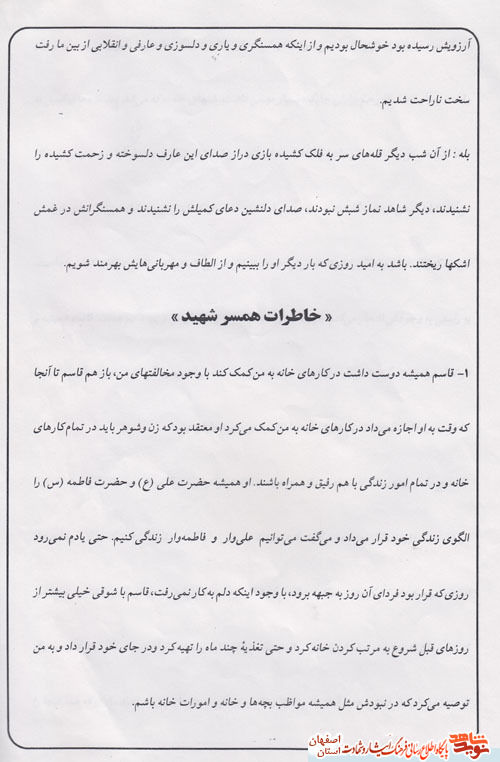 آرزویش رسیده بود خوشحال بودیم و از اینکه همسنگری و یاری و دلسوزی و عارفی و انقلابی از بین ما رفت
سخت ناراحت شدیم.
بله : از آن شب دیگر قله‌های سر به فلک کشیده بازی دراز صدای این عارف دلسوخته و زحمت کشیده را
نشنیدند، دیگر شاهد نماز شبش نبودند، صدای دلنشین دعای کمیلش را نشنیدند و همسنگرانش در غمش
اشکها ریختند. باشد به امید روزی که بار دیگر او را ببینیم و از الطاف و مهربانی‌هایش بهرمند شویم.
« خاطرات همسر شهید »
۱- قاسم همیشه دوست داشت در کارهای خانه به من کمک کند با وجود مخالفتهای من، باز هم قاسم تا آنجا
که وقت به او اجازه می‌داد در کارهای خانه به من کمک می‌کرد او معتقد بود که زن وشوهر باید در تمام کارهای
خانه و در تمام امور زندگی با هم رفیق و همراه باشند. او همیشه حضرت علی (ع) و حضرت فاطمه (س) را
الگوی زندگی خود قرار می‌داد و می‌گفت می‌توانیم علی‌وار و فاطمه‌وار زندگی کنیم. حتی یادم نمی‌رود
روزی که قرار بود فردای آن روز به جبهه برود، با وجود اینکه دلم به کار نمی‌رفت، قاسم با شوقی خیلی بیشتر از
روزهای قبل شروع به مرتب کردن خانه کرد و حتی تغذیهٔ چند ماه را تهیه کرد ودر جای خود قرار داد و به من
توصیه می‌کرد که در نبودش مثل همیشه مواظب بچه‌ها و خانه و امورات خانه باشم.
نوید شاهد پایگاه اطلاع رسانی فرهنگ ایثار و شهادت استان اصفهان